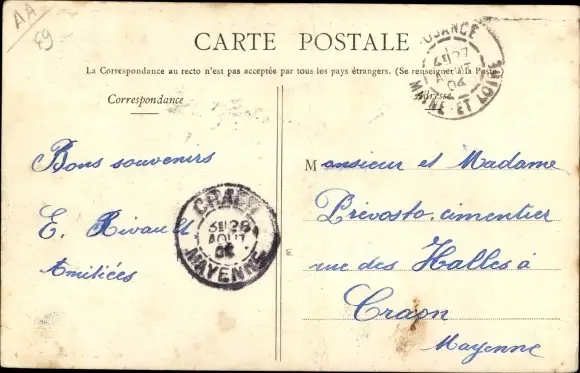 AA
49
CARTE POSTALE
La Correspondance au recto n'est pas acceptée par tous les pays étrangers. (Se renseigner à la Poste)
Correspondance
Adresse
MAINE-ET-LOIRE
Bons souvenirs
E. Rivault
Amitiées
CRAON
28
AOUT
04
MAYENNE
Monsieur et Madame
Prévosto, cimentier
rue des Halles à
Craon
Mayenne